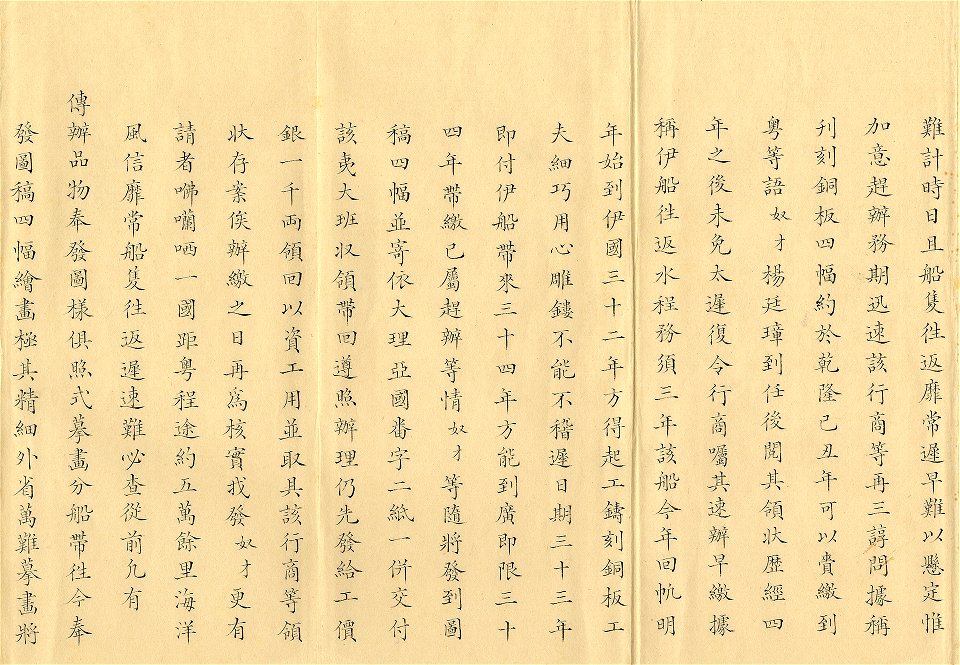 難計時日且船隻往返靡常遲早難以懸定惟
加意趕辦務期迅速該行商等再三諄問據稱
刊刻銅板四幅約於乾隆己丑年可以賫繳到
粵等語奴才楊廷璋到任後閱其領狀歷經四
年之後未免太遲復令行商囑其速辦早繳據
稱伊船往返水程務須三年該船今年回帆明
年始到伊國三十二年方得起工鑄刻銅板工
夫細巧用心雕鏤不能不稽遲日期三十三年
即付伊船帶來三十四年方能到廣即限三十
四年帶繳已屬趕辦等情奴才等隨將發到圖
稿四幅並寄依大理亞國番字二紙一併交付
該夷大班収領帶回遵照辦理仍先發給工價
銀一千両領回以資工用並取具該行商等領
狀存案俟辦繳之日再為核實找發奴才更有
請者咈囒哂一國距粵程途約五萬餘里海洋
風信靡常船隻往返遲速難必查從前凢有
傳辦品物奉發圖樣俱照式摹畫分船帶往今奉
發圖稿四幅繪畫極其精細外省萬難摹畫將